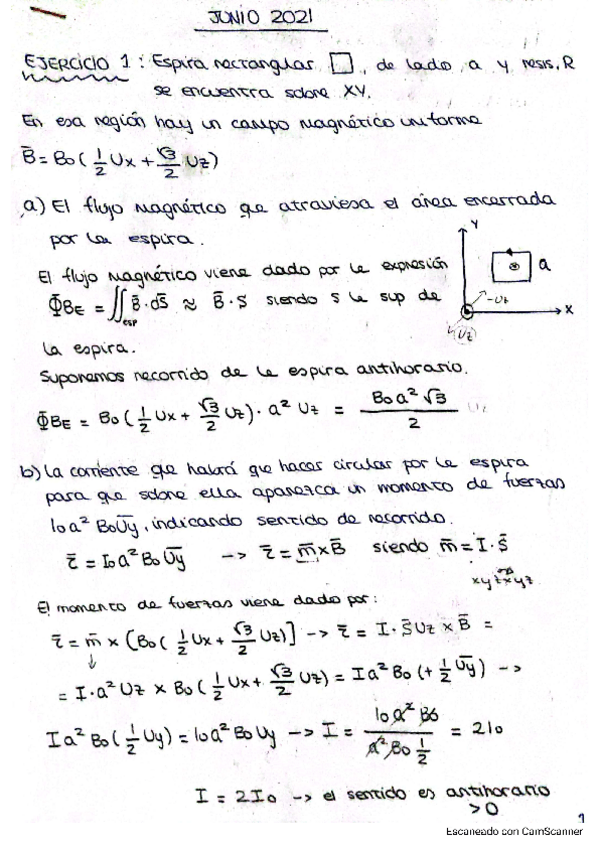 JUNIO 2021
EJERCICIO 1: Espira rectangular □, de lado a y resis. R
se encuentra sobre XY.
En esa región hay un campo magnético uniforme
B̄ = B₀ (1/2 Ux + √3/2 Uz)
a) El flujo magnético que atraviesa el área encerrada
por la espira.
Y
a
-Uz
X
Uz
El flujo magnético viene dado por la expresión
ΦBE = ∬esp B̄·ds̄ ≈ B̄·S siendo S la sup de
la espira.
Suponemos recorrido de la espira antihorario.
ΦBE = B₀ (1/2 Ux + √3/2 Uz)·a² Uz = B₀a²√3 / 2 Uz
b) La corriente que habrá que hacer circular por la espira
para que sobre ella aparezca un momento de fuerzas
I₀a² B₀Ūy, indicando sentido de recorrido.
τ̄ = I₀a² B₀ Ūy -> τ̄ = m̄ x B̄ siendo m̄ = I·S̄
xyzxyz
El momento de fuerzas viene dado por:
τ̄ = m̄ x [B₀ (1/2 Ux + √3/2 Uz)] -> τ̄ = I·S̄Uz x B̄ =
↓
= I·a² Uz x B₀ (1/2 Ux + √3/2 Uz) = Ia² B₀ (+1/2 Ūy) ->
Ia² B₀ (1/2 Uy) = I₀a² B₀ Uy -> I = I₀a² B₀ / a² B₀ 1/2 = 2I₀
I = 2I₀ -> el sentido es antihorario
>0
1
Escaneado con CamScanner